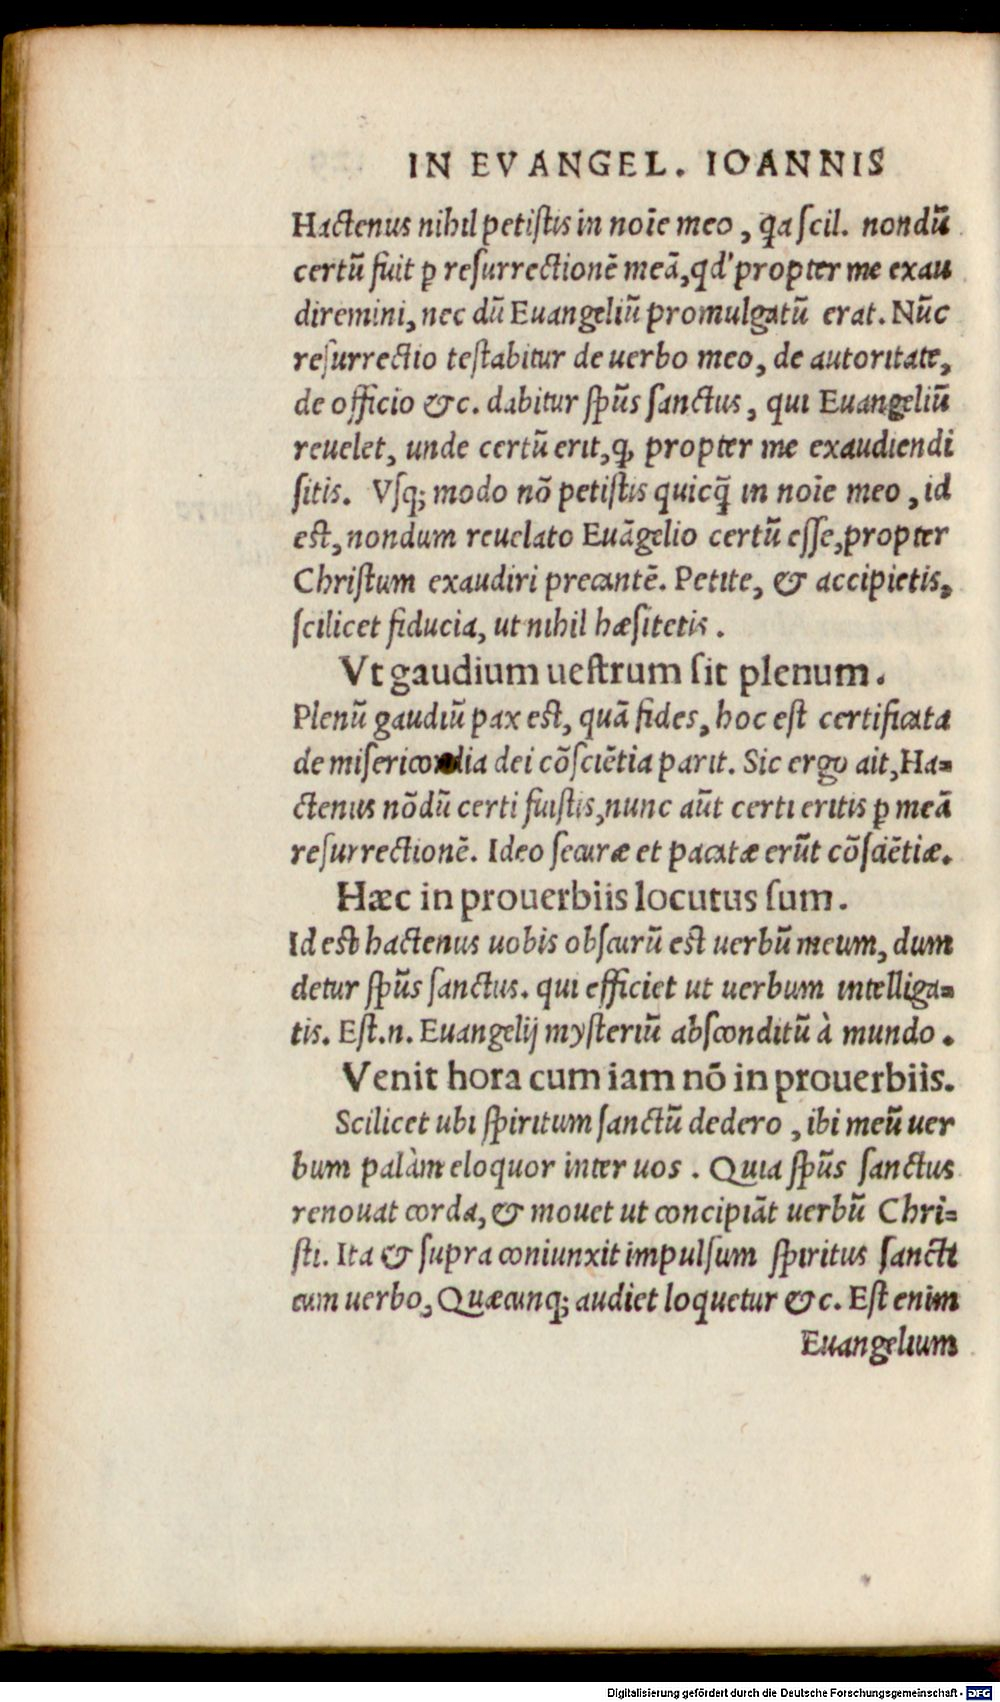 IN EVANGEL. IOANNIS
Hactenus nihil petiſtis in noĩe meo, q̃a ſcil. nondũ
certũ fuit ꝑ reſurrectionẽ meã, qd' propter me exau
diremini, nec dũ Euangeliũ promulgatũ erat. Nũc
reſurrectio teſtabitur de uerbo meo, de autoritate,
de officio &c. dabitur ſpũs ſanctus, qui Euangeliũ
reuelet, unde certũ erit, ꝙ propter me exaudiendi
ſitis. Vſq; modo nõ petiſtis quicq̃ in noĩe meo, id
est, nondum reuelato Euãgelio certũ eſſe, propter
Chriſtum exaudiri precantẽ. Petite, & accipietis,
ſcilicet fiducia, ut nihil hæſitetis.
Vt gaudium ueſtrum ſit plenum.
Plenũ gaudiũ pax est, quã fides, hoc est certificata
de miſericordia dei cõſciẽtia parit. Sic ergo ait, Ha-
ctenus nõdũ certi fuiſtis, nunc aũt certi eritis ꝑ meã
reſurrectionẽ. Ideo ſecuræ et pacatæ erũt cõſciẽtiæ.
Hæc in prouerbiis locutus ſum.
Id est hactenus uobis obſcurũ est uerbũ meum, dum
detur ſpũs ſanctus. qui efficiet ut uerbum intelliga-
tis. Eſt.n. Euangelij myſteriũ abſconditũ à mundo.
Venit hora cum iam nõ in prouerbiis.
Scilicet ubi ſpiritum ſanctũ dedero, ibi meũ uer
bum palàm eloquor inter uos. Quia ſpũs ſanctus
renouat corda, & mouet ut concipiãt uerbũ Chri-
ſti. Ita & ſupra coniunxit impulſum ſpiritus ſancti
cum uerbo, Quæcunq; audiet loquetur &c. Eſt enim
Euangelium
Digitalisierung gefördert durch die Deutsche Forschungsgemeinschaft - DFG